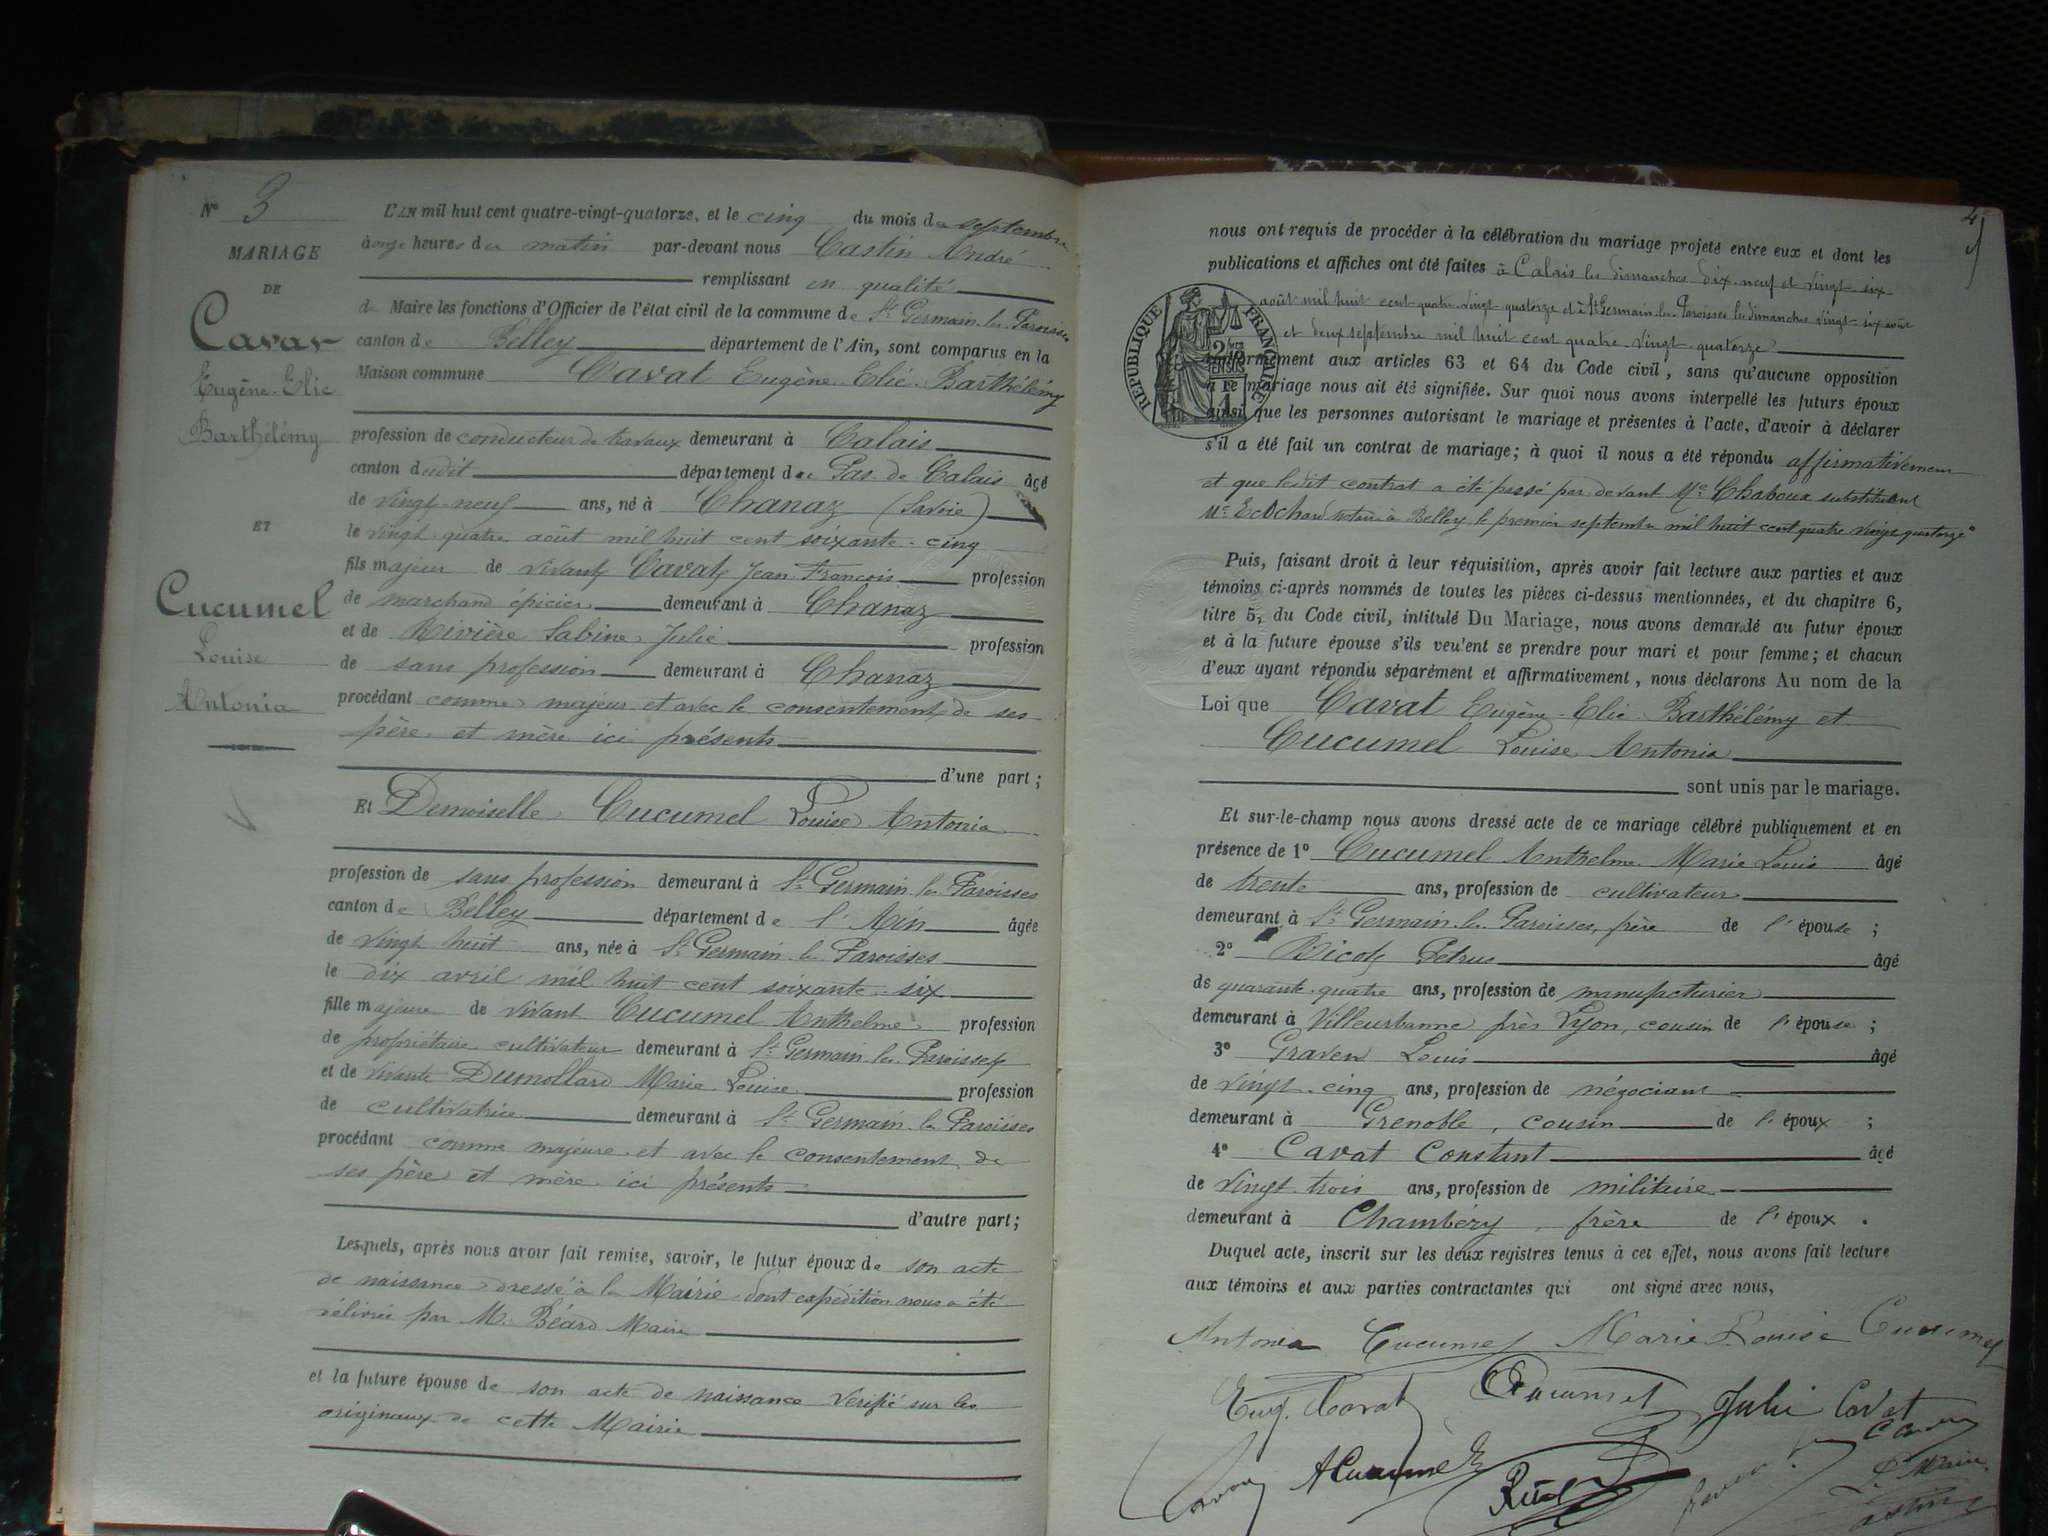 N° 3
MARIAGE
DE
Cavat
Eugène-Elie
Barthélémy
ET
Cucumel
Louise
Antonia
L'AN mil huit cent quatre-vingt-quatorze, et le cinq du mois de septembre
à onze heures du matin par-devant nous Castin André
remplissant en qualité
de Maire les fonctions d'Officier de l'état civil de la commune de St Germain-les-Paroisses
canton de Belley département de l'Ain, sont comparus en la
Maison commune Cavat Eugène-Elie-Barthélémy
profession de conducteur de travaux demeurant à Calais
canton dudit département de Pas-de-Calais âgé
de vingt-neuf ans, né à Chanaz (Savoie)
le vingt-quatre août mil huit cent soixante-cinq
fils majeur de vivant Cavat Jean-François profession
de marchand épicier demeurant à Chanaz
et de Rivière Sabine Julie profession
de sans profession demeurant à Chanaz
procédant comme majeur et avec le consentement de ses
père et mère ici présents
d'une part ;
Et Demoiselle Cucumel Louise Antonia
profession de sans profession demeurant à St Germain-les-Paroisses
canton de Belley département de l'Ain âgée
de vingt huit ans, née à St Germain-les-Paroisses
le dix avril mil huit cent soixante-six
fille majeure de vivant Cucumel Anthelme profession
de propriétaire cultivateur demeurant à St Germain-les-Paroisses
et de vivante Dumollard Marie-Louise profession
de cultivatrice demeurant à St Germain-les-Paroisses
procédant comme majeure et avec le consentement de
ses père et mère ici présents
d'autre part ;
Lesquels, après nous avoir fait remise, savoir, le futur époux de son acte
de naissance dressé à la Mairie dont expédition nous a été
délivrée par M. Béard Maire
et la future épouse de son acte de naissance vérifié sur les
originaux de cette Mairie
4
nous ont requis de procéder à la célébration du mariage projeté entre eux et dont les
publications et affiches ont été faites à Calais les dimanches dix-neuf et vingt-six
août mil huit cent quatre-vingt-quatorze et à St Germain-les-Paroisses les dimanches vingt-six août
et deux septembre mil huit cent quatre-vingt-quatorze
RÉPUBLIQUE FRANÇAISE
conformément aux articles 63 et 64 du Code civil, sans qu'aucune opposition
à ce mariage nous ait été signifiée. Sur quoi nous avons interpellé les futurs époux
ainsi que les personnes autorisant le mariage et présentes à l'acte, d'avoir à déclarer
s'il a été fait un contrat de mariage ; à quoi il nous a été répondu affirmativement
et que ledit contrat a été passé par devant Me Chaboux substituant
Me Ecochard notaire à Belley le premier septembre mil huit cent quatre vingt quatorze
Puis, faisant droit à leur réquisition, après avoir fait lecture aux parties et aux
témoins ci-après nommés de toutes les pièces ci-dessus mentionnées, et du chapitre 6,
titre 5, du Code civil, intitulé Du Mariage, nous avons demandé au futur époux
et à la future épouse s'ils veulent se prendre pour mari et pour femme ; et chacun
d'eux ayant répondu séparément et affirmativement, nous déclarons Au nom de la
Loi que Cavat Eugène-Elie-Barthélémy et
Cucumel Louise Antonia
sont unis par le mariage.
Et sur-le-champ nous avons dressé acte de ce mariage célébré publiquement et en
présence de 1° Cucumel Anthelme Marie Louis âgé
de trente ans, profession de cultivateur
demeurant à St Germain-les-Paroisses, frère de l'épouse ;
2° Petrus âgé
de quarante-quatre ans, profession de manufacturier
demeurant à Villeurbanne près Lyon, cousin de l'épouse ;
3° Graven Louis âgé
de vingt-cinq ans, profession de négociant
demeurant à Grenoble, cousin de l'époux ;
4° Cavat Constant âgé
de vingt-trois ans, profession de militaire
demeurant à Chambéry, frère de l'époux.
Duquel acte, inscrit sur les deux registres tenus à cet effet, nous avons fait lecture
aux témoins et aux parties contractantes qui ont signé avec nous,
Antonia Cucumel Marie Louise Cucumel
Eug. Cavat Cucumel Julie Cavat
A Cucumel